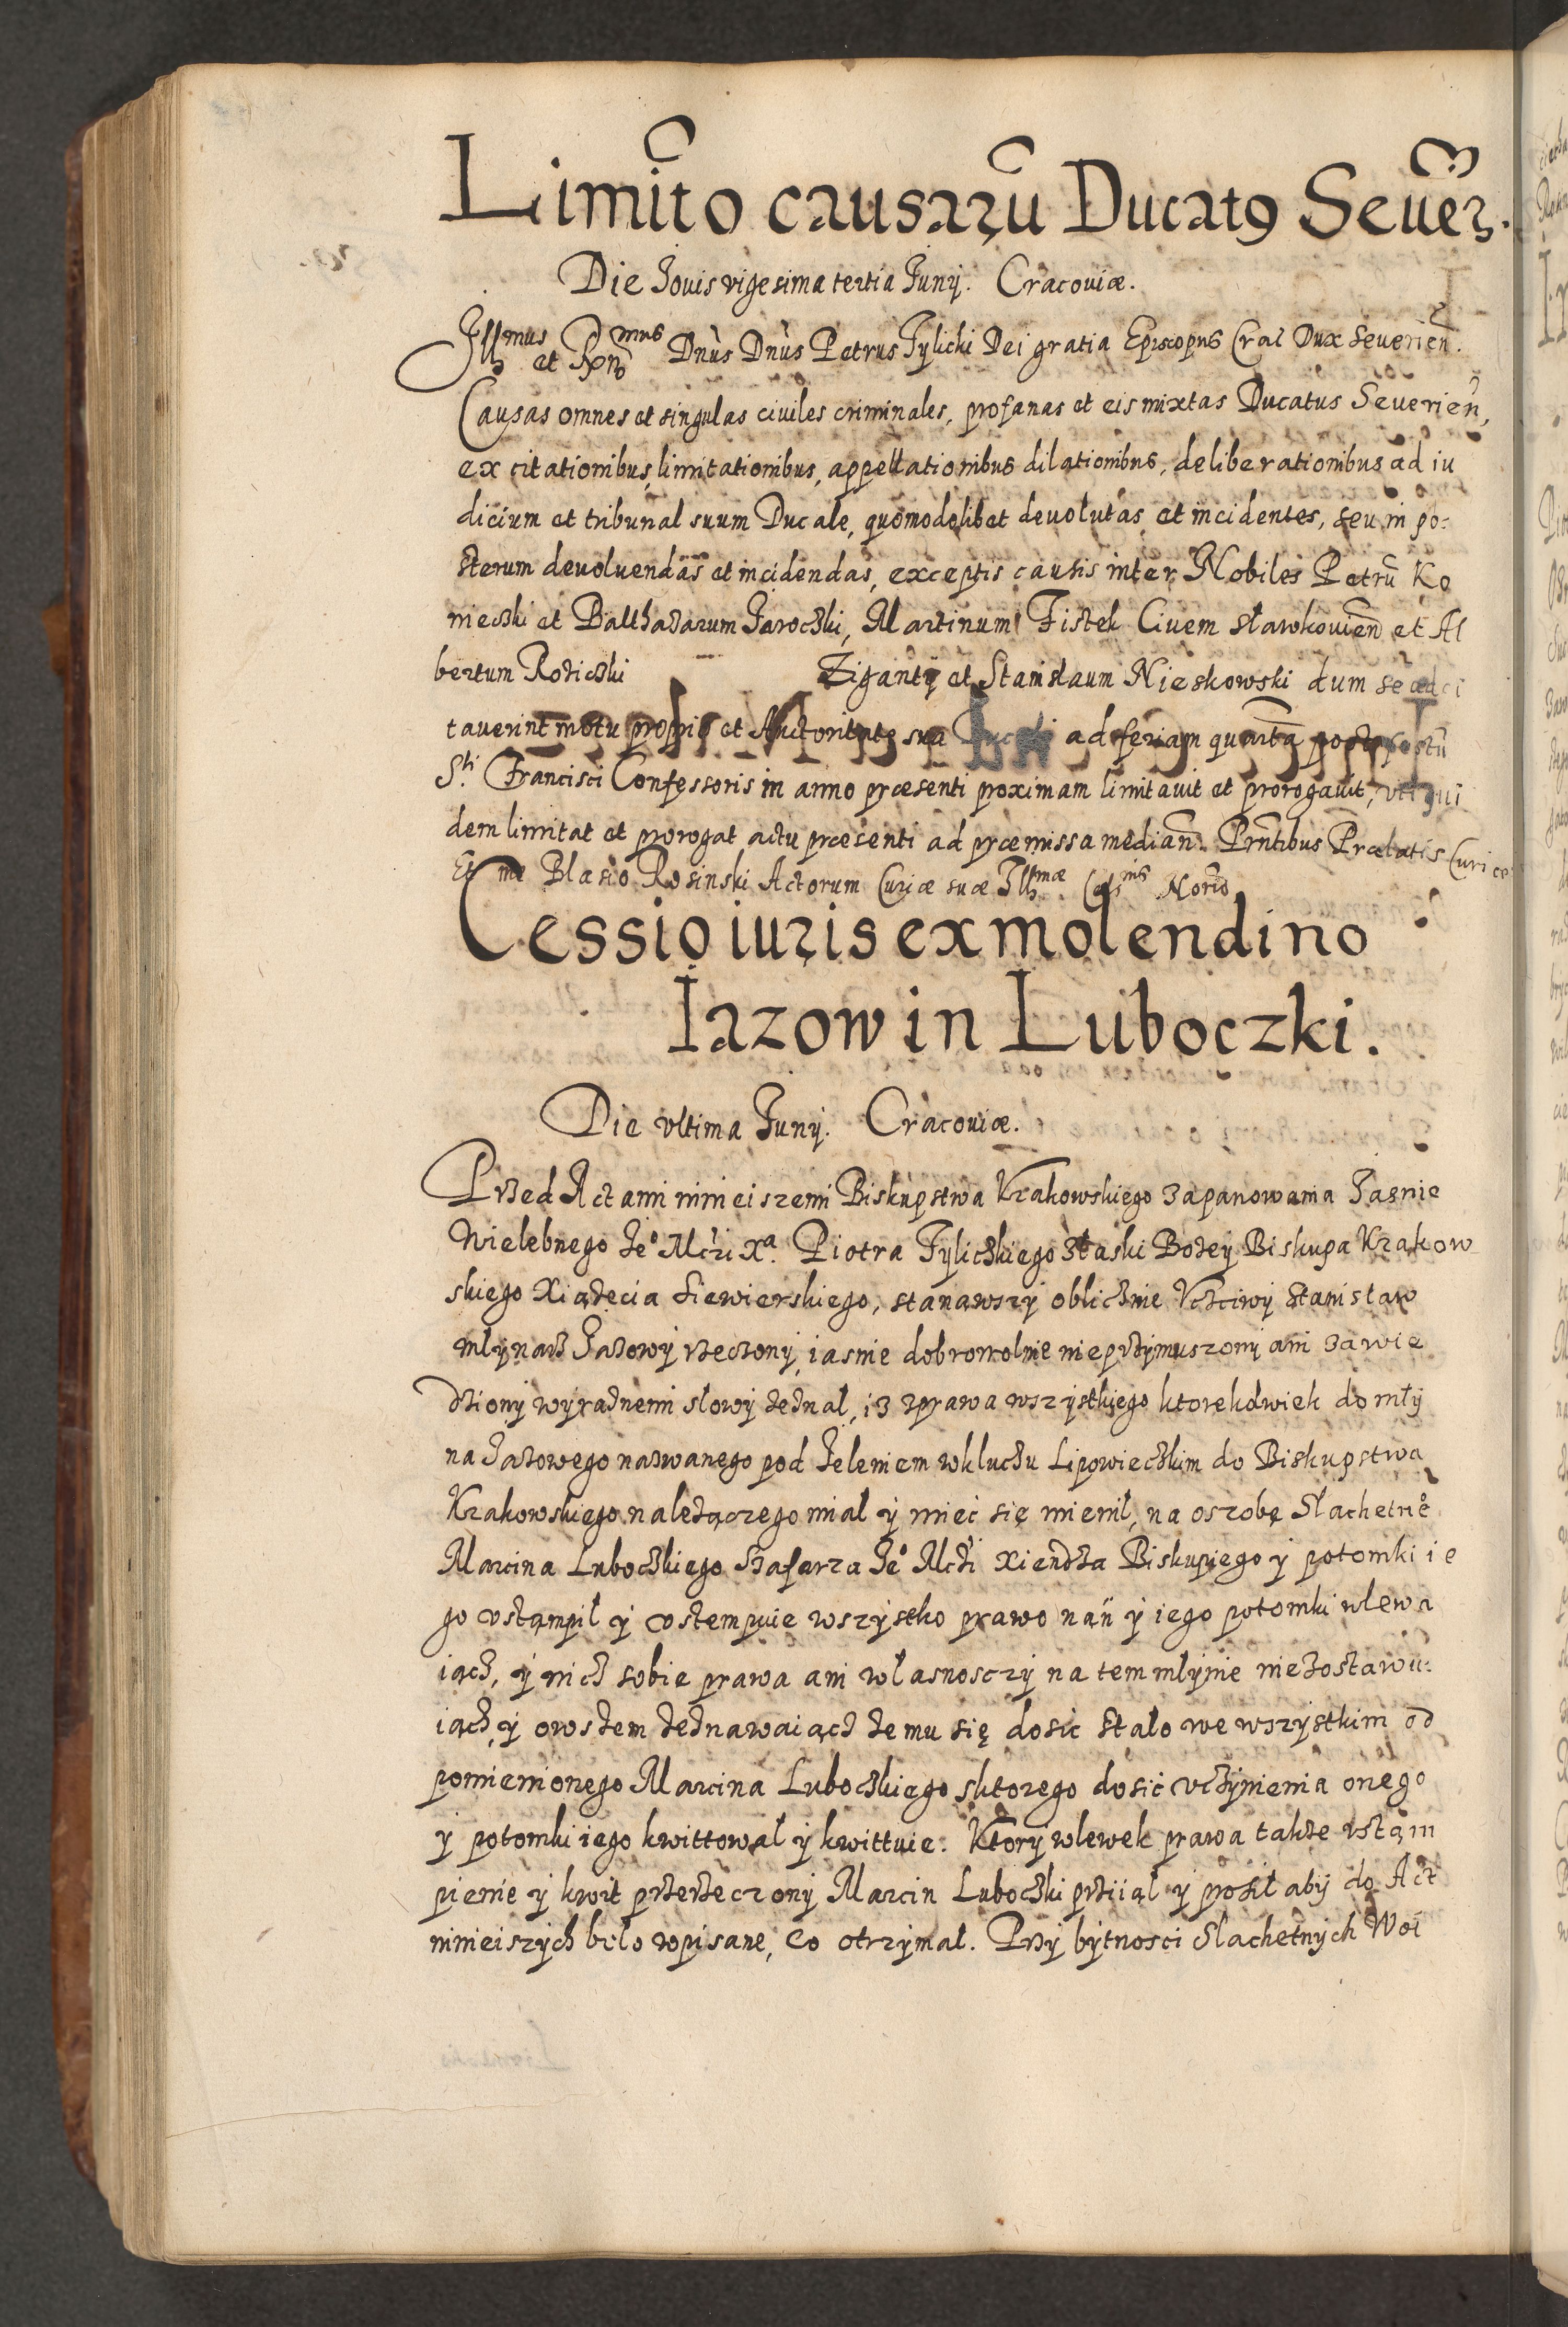 Limito causaru Ducatꝯ Seuer.
Die Jouis vigesima tertia Junij. Cracouiæ.
Illmus et Rndmus Dnus Dnus Petrus Tylicki Dei gratia Episcopus Crac Dux Seuerien.
Causas omnes et singulas ciuiles criminales, profanas et eis mixtas Ducatus Seuerien,
ex citationibus, limitationibus, appellationibus dilationibus, deliberationibus ad iu
dicium et tribunal suum Ducale, quomodolibet deuolutas et incidentes, seu in po=
sterum deuoluendas et incidendas, exceptis causis inter Nobiles Petru Ko
nieczki et Balthazarum Jaroczki, Martinum Fistek Ciuem Slawkouien et Al
bertum Roziczki Ziganty et Stanislaum Nieskowski dum se ad ci
tauerint motu proprio et Auctoritate sua Ducali ad feriam quarta post festu
Sti Francisci Confessoris in anno præsenti proximam limitauit et prorogauit, uti qui
dem limitat et prorogat actu præsenti ad præmissa median. Prntibus Prælatis Curiæ
Et me Blasio Rosinski Actorum Curiæ suæ Illmæ Cels Norio
Cessio iuris ex molendino
Iazow in Luboczki.
Die vltima Junij. Cracouiæ.
Przed Actami ninieiszemi Biskupstwa Krakowskiego za panowania Jasnie
Wielebnego Jeo Mczi Xa. Piotra Tyliczkiego z łaski Bozey Biskupa Krakow
skiego Xiązecia Siewierskiego, stanawszy obliczme Vcziwy Stanisław
mlynarz Jazowy rzeczony, iasnie dobrowolnie nieprzymuszony ani zawie
dziony wyraznemi słowy zeznał, iz zprawa wszystkiego ktorekolwiek do mły
na Jazowego nazwanego pod Jeleniem w kluczu Lipowieczkim do Biskupstwa
Krakowskiego należączego miał y miec się mienił, na oszobę Slachetneo
Marcina Luboczkiego Szafarza Jeo Mczi xiendza Biskupiego y potomki ie
go vstąmpił y vstempuie wszystko prawo nań y iego potomki wlewa
iącz, y nicz sobie prawa ani własnosczy na tem młynie nie zostawu=
iącz, y owszem zeznawaiącz ze mu się dosic stało we wszystkim od
pomienionego Marcina Luboczkiego sktorego dosic vczynienia onego
y potomki iego kwittował y kwittuie. Ktory wlewek prawa takze vstąm
pienie y kwit przerzeczony Marcin Luboczki przyiął y prosił aby do Act
ninieiszych beło wpisane, Co otrzymał. Przy bytnosci Slachetnych Woi